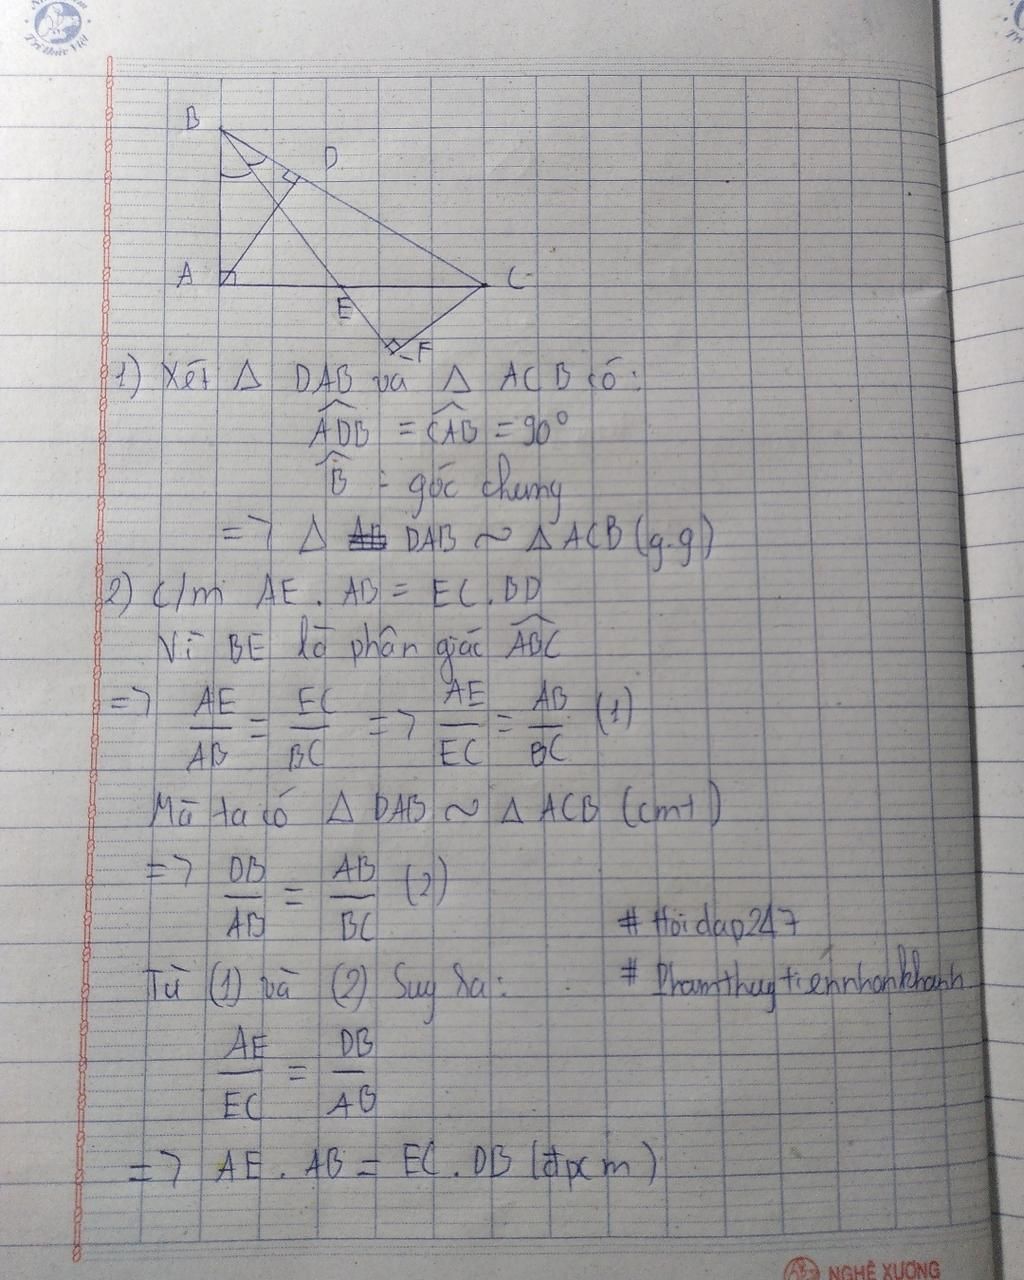 Trí thức Việt
B
D
A
C
E
F
1) Xét △ DAB và △ ACB có:
ADB = CAB = 90°
B : góc chung
=> △ DAB ~ △ ACB (g.g)
2) C/m AE . AB = EC . BD
Vì BE là phân giác ABC
=> AE/AB = EC/BC => AE/EC = AB/BC (1)
Mà ta có △ DAB ~ △ ACB (cmt)
=> DB/AB = AB/BC (2)
# Hoidap247
Từ (1) và (2) Suy ra:
# Phamthuytiennhonkhanh
AE/EC = DB/AB
=> AE . AB = EC . DB (đpcm)
NGHỆ XƯƠNG